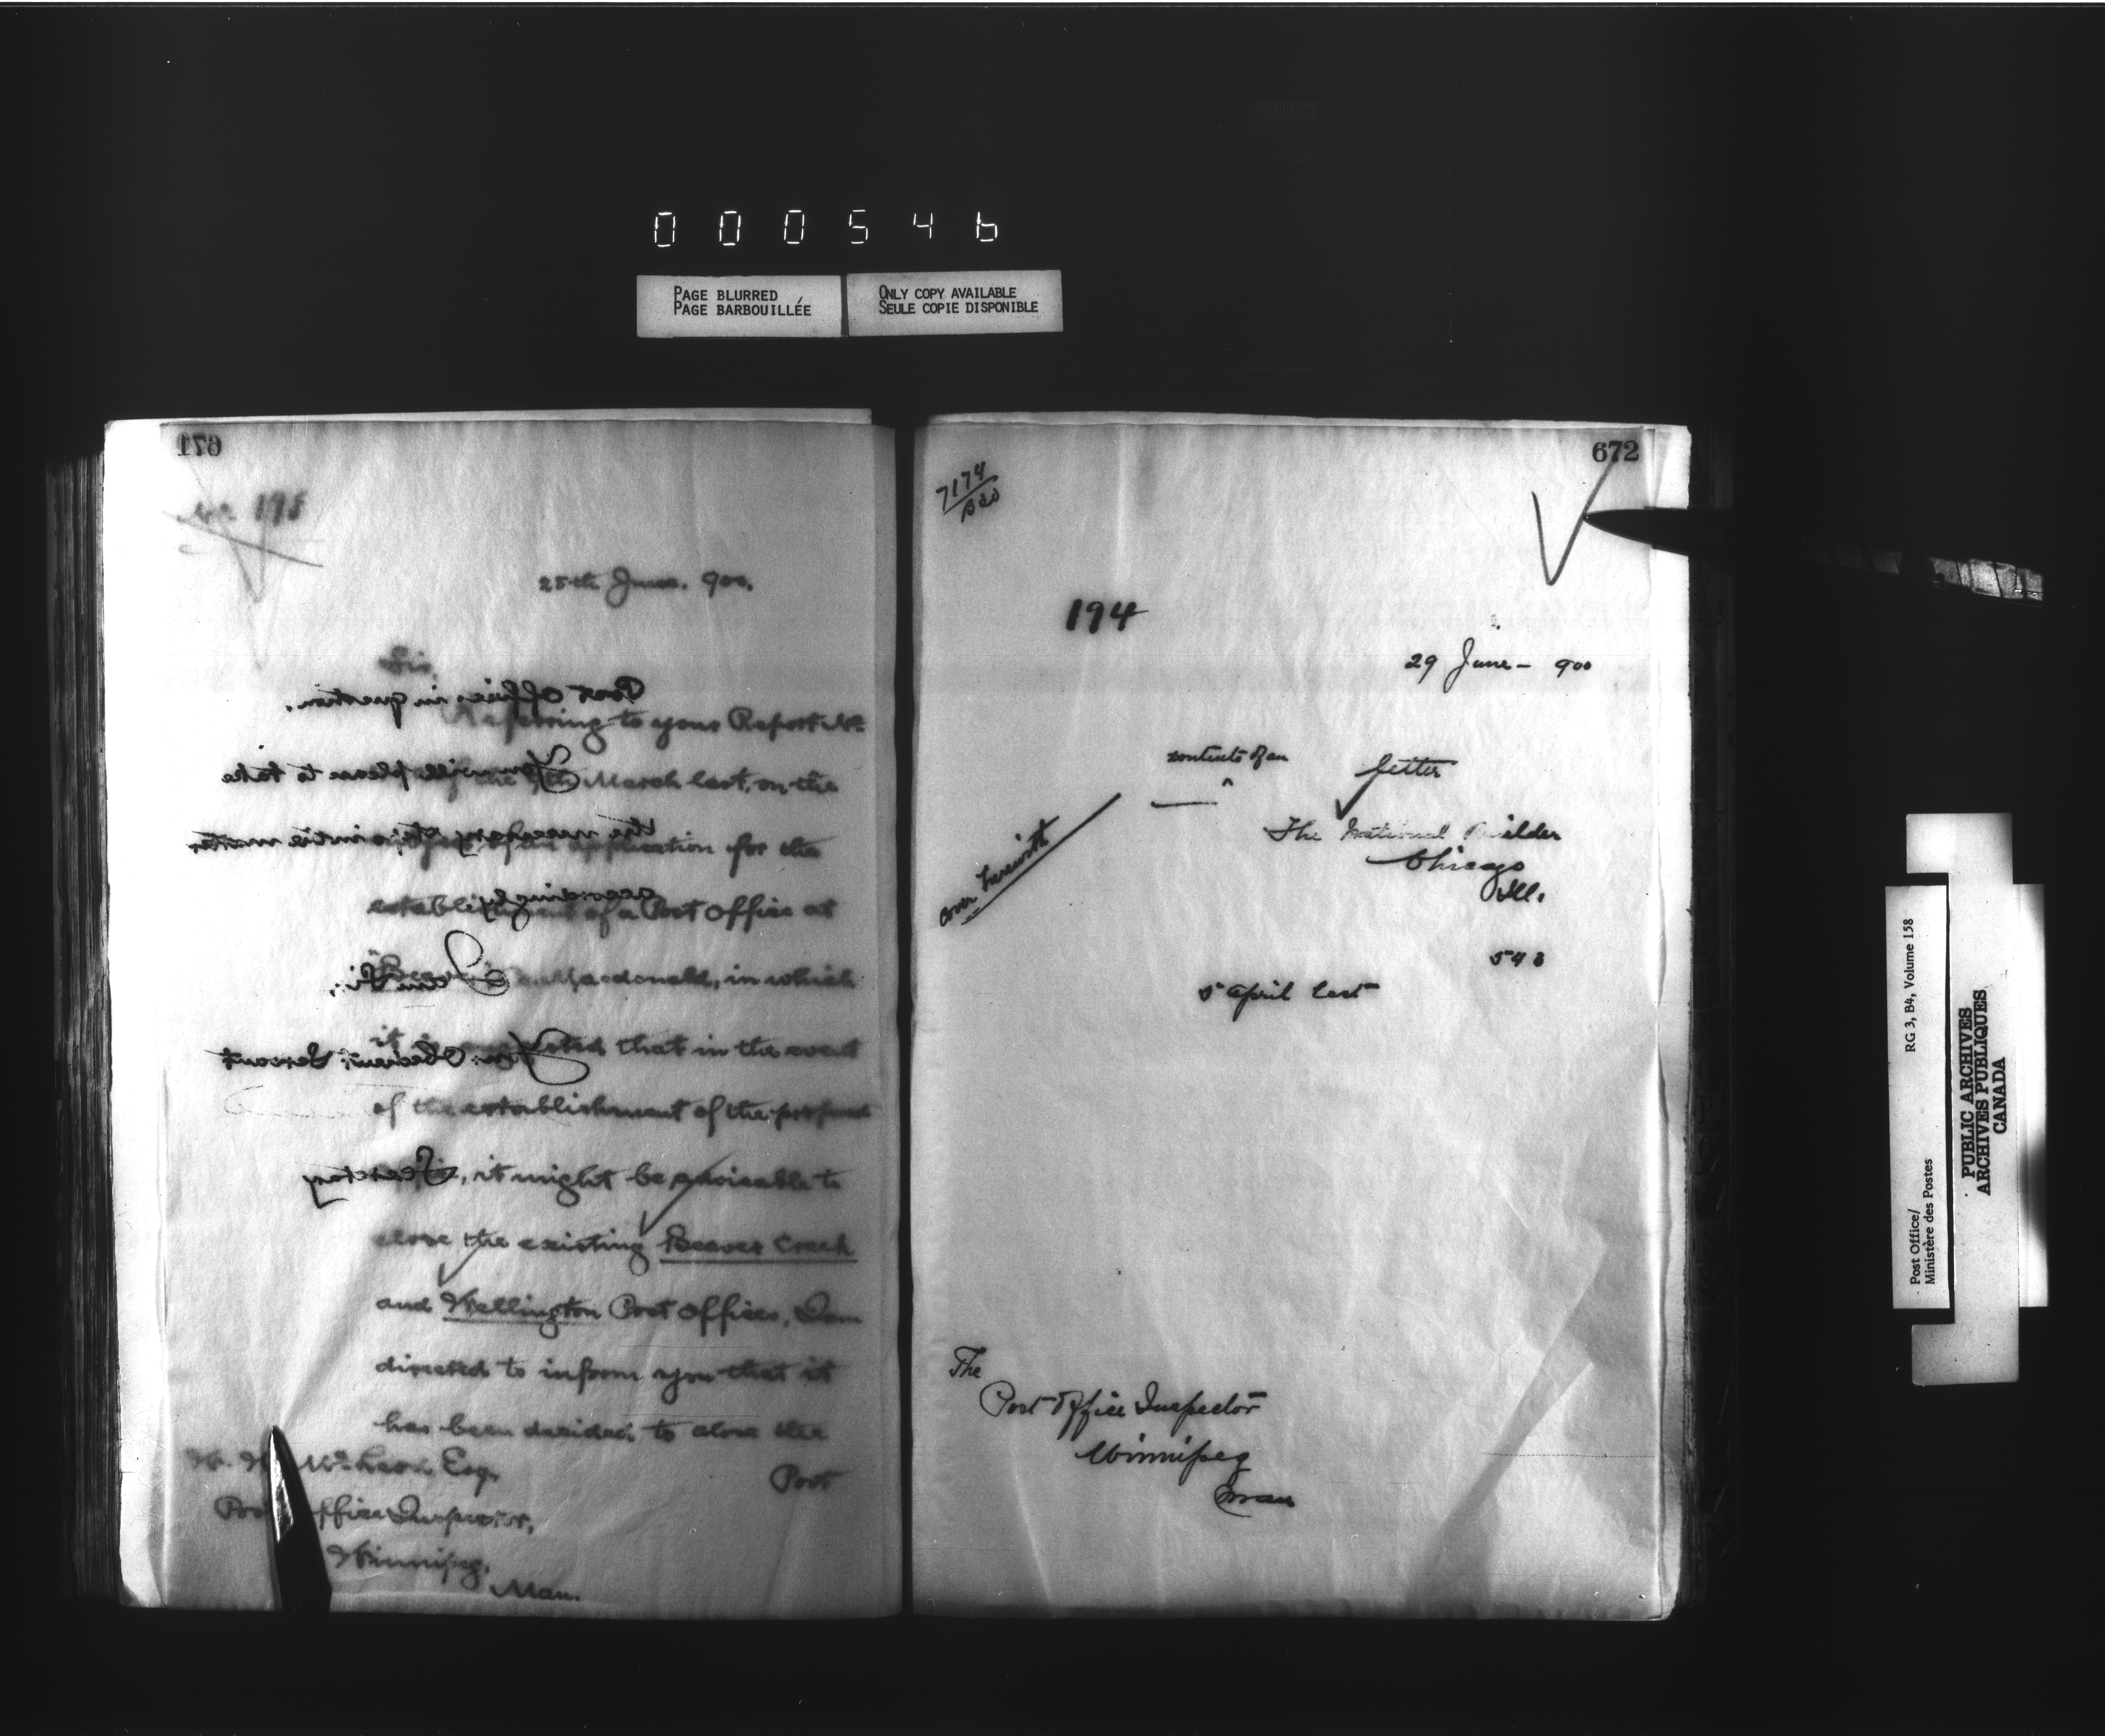 000546
PAGE BLURRED
PAGE BARBOUILLÉE
ONLY COPY AVAILABLE
SEULE COPIE DISPONIBLE
671
25th June. 900.
Sir,
Referring to your Report No.
March last, on the
application for the
establishment of a Post Office at
Macdonald, in which
it that in the event
of the establishment of the proposed
it might be advisable to
close the existing Beaver Creek
and Wellington Post Offices, I am
directed to inform you that it
has been decided to close the
Post
Esq.
Post Office Inspector,
Winnipeg,
Man.
Post Offices in question.
You will please to take
the necessary in the matter
accordingly.
I am Sir,
Your Obedient Servant
Secretary
672
7174
194
29 June - 900
contents of an
letter
cover herewith
The National Builder
Chicago
Ill.
543
5 April last
The
Post Office Inspector
Winnipeg
Man
Post Office/
Ministère des Postes
RG 3, B4, Volume 158
PUBLIC ARCHIVES
ARCHIVES PUBLIQUES
CANADA